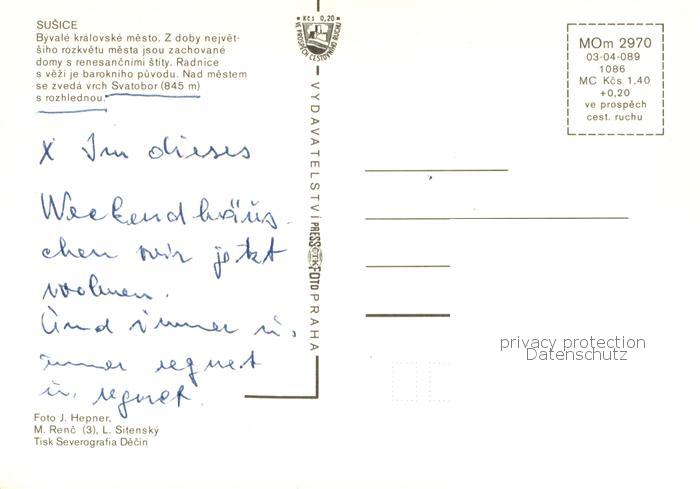 SUŠICE
Bývalé královské město. Z doby největ-
šího rozkvětu města jsou zachované
domy s renesančními štíty. Radnice
s věží je barokního původu. Nad městem
se zvedá vrch Svatobor (845 m)
s rozhlednou.
X Im dieses
Weekendhäus-
chen wir jetzt
wohnen.
Und immer u.
immer regnet
u. regnet.
Foto J. Hepner,
M. Renč (3), L. Sitenský
Tisk Severografia Děčín
Kčs 0,20
VE PROSPĚCH CESTOVNÍHO RUCHU
VYDAVATELSTVÍ PRESSFOTO PRAHA
MOm 2970
03-04-089
1086
MC Kčs 1,40
+0,20
ve prospěch
cest. ruchu
privacy protection
Datenschutz